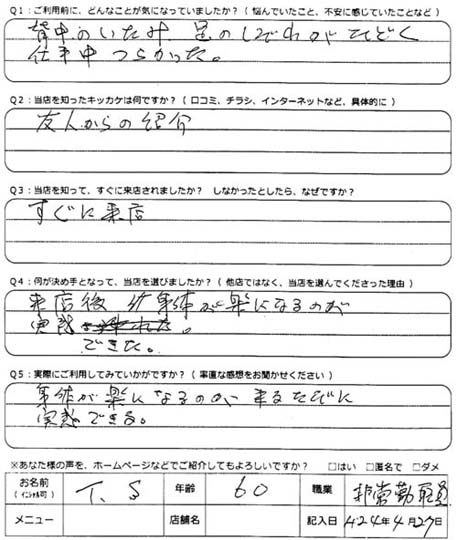 Q1：ご利用前に、どんなことが気になっていましたか？（ 悩んでいたこと、不安に感じていたことなど ）
背中のいたみ 足のしびれがひどく
仕事中つらかった。
Q2：当店を知ったキッカケは何ですか？（ 口コミ、チラシ、インターネットなど、具体的に ）
友人からの紹介
Q3：当店を知って、すぐに来店されましたか？ しなかったとしたら、なぜですか？
すぐに来店
Q4：何が決め手となって、当店を選びましたか？（ 他店ではなく、当店を選んでくださった理由 ）
来店後 身体が楽になるのが
実感
できた。
Q5：実際にご利用してみていかがですか？（ 率直な感想をお聞かせください ）
身体が楽になるのが 来るたびに
実感できる。
※あなた様の声を、ホームページなどでご紹介してもよろしいですか？ □はい □匿名で □ダメ
お名前（イニシャル可） T.S 年齢 60 職業 非常勤職員
メニュー 店舗名 記入日 H24年4月27日